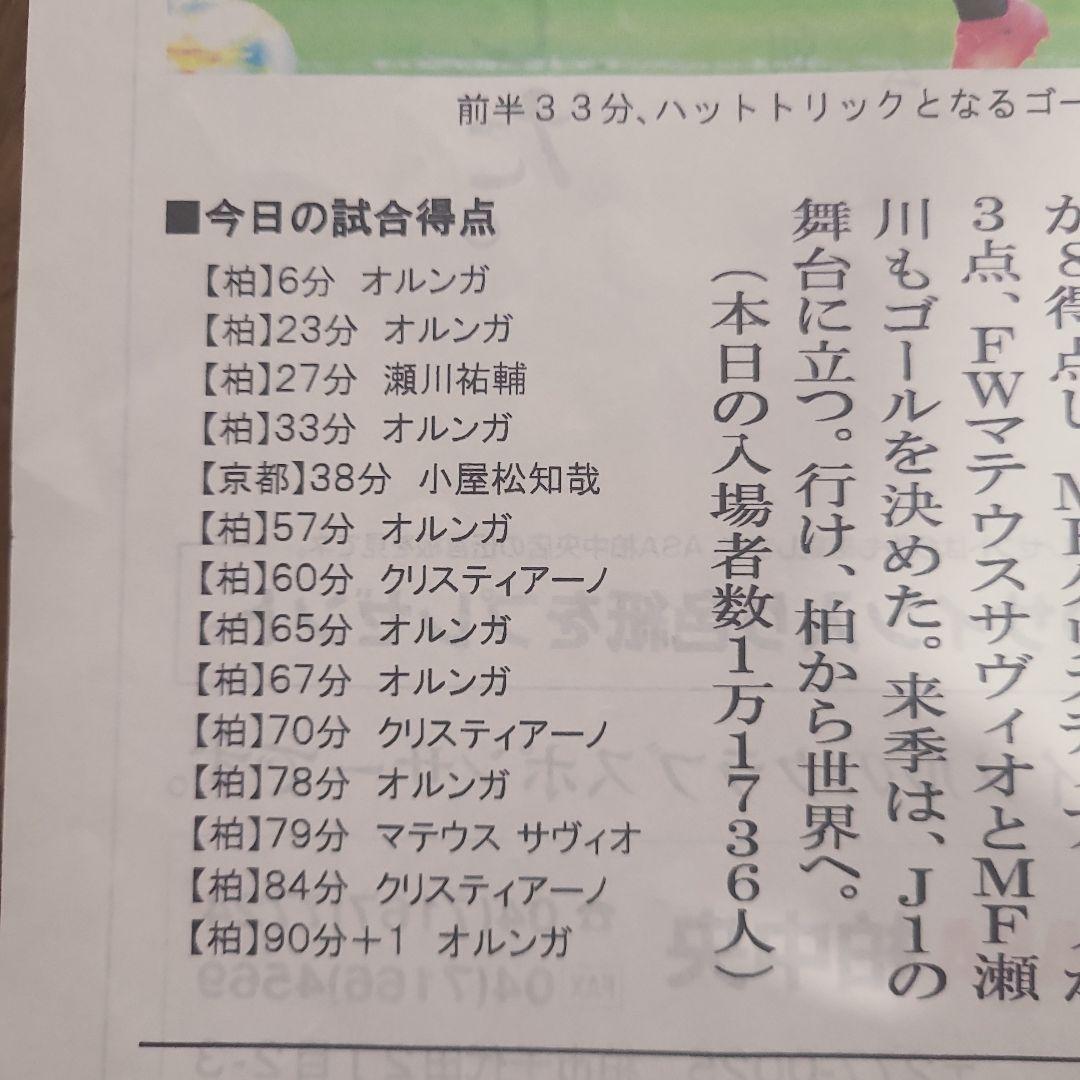 前半３３分、ハットトリックとなるゴー
■今日の試合得点
【柏】6分 オルンガ
【柏】23分 オルンガ
【柏】27分 瀬川祐輔
【柏】33分 オルンガ
【京都】38分 小屋松知哉
【柏】57分 オルンガ
【柏】60分 クリスティアーノ
【柏】65分 オルンガ
【柏】67分 オルンガ
【柏】70分 クリスティアーノ
【柏】78分 オルンガ
【柏】79分 マテウス サヴィオ
【柏】84分 クリスティアーノ
【柏】90分＋1 オルンガ
３点、ＦＷマテウスサヴィオとＭＦ瀬
川もゴールを決めた。来季は、Ｊ１の
舞台に立つ。行け、柏から世界へ。
（本日の入場者数１万１７３６人）